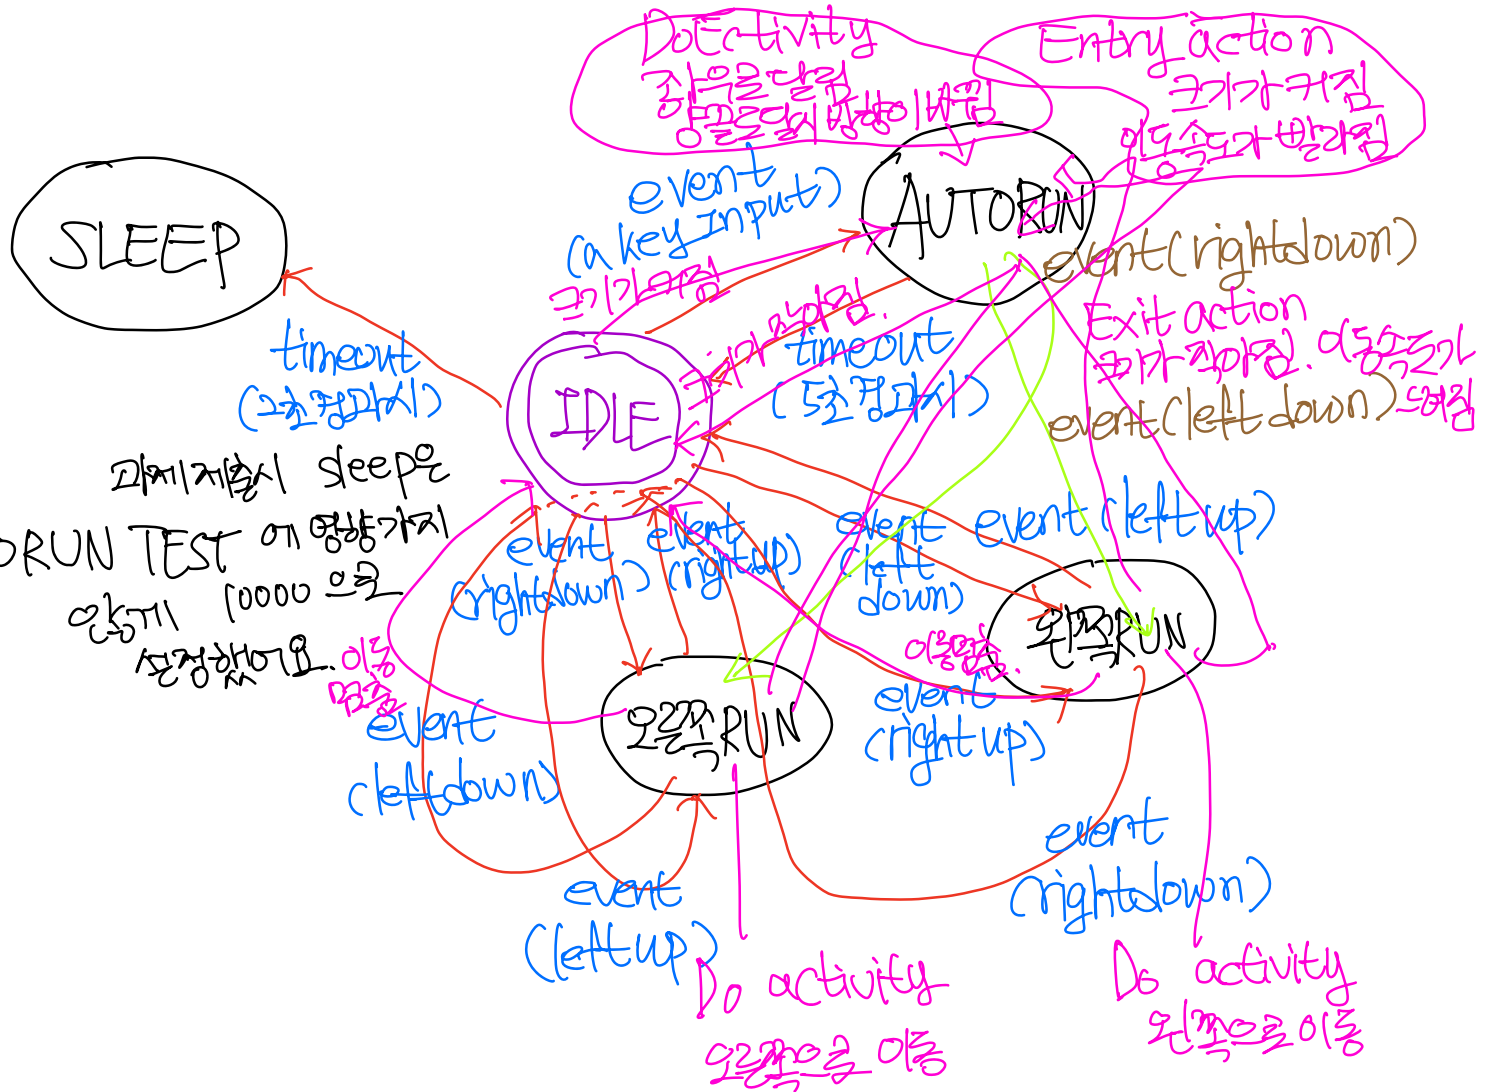 DoEctivity
좌우로 달림
양끝 도달시 방향이 바뀜
Entry action
크기가 커짐
이동속도가 빨라짐
SLEEP
event
(a key Input)
크기가 커짐
AUTORUN
event(rightdown)
Exit action
크기가 작아짐. 이동속도가
느려짐
event(leftdown)
timeout
(2초경과시)
크기가 작아짐.
timeout
(5초경과시)
IDLE
과제제출시 sleep은
ORUN TEST에 영향가지
않게 10000 으로
설정했어요.
이동
멈춤
event
(rightdown)
event
(rightup)
event
(left
down)
event(leftup)
왼쪽RUN
이동멈춤.
event
(rightup)
오른쪽RUN
event
(leftdown)
event
(leftup)
event
(rightdown)
Do activity
오른쪽으로 이동
Do activity
왼쪽으로 이동